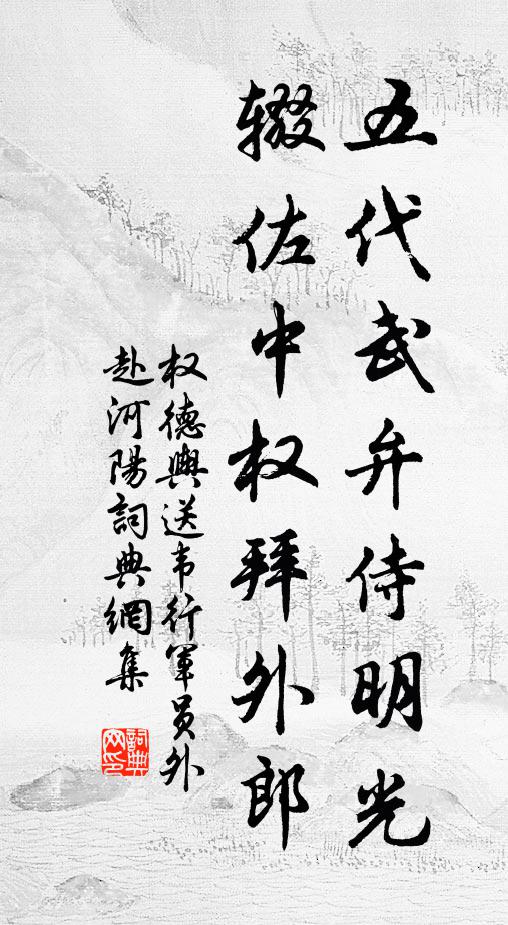 五代武弁侍明光
辍佐中权拜外郎
权德輿送韦行軍员外
赴河陽詞典網集
詞典
网印